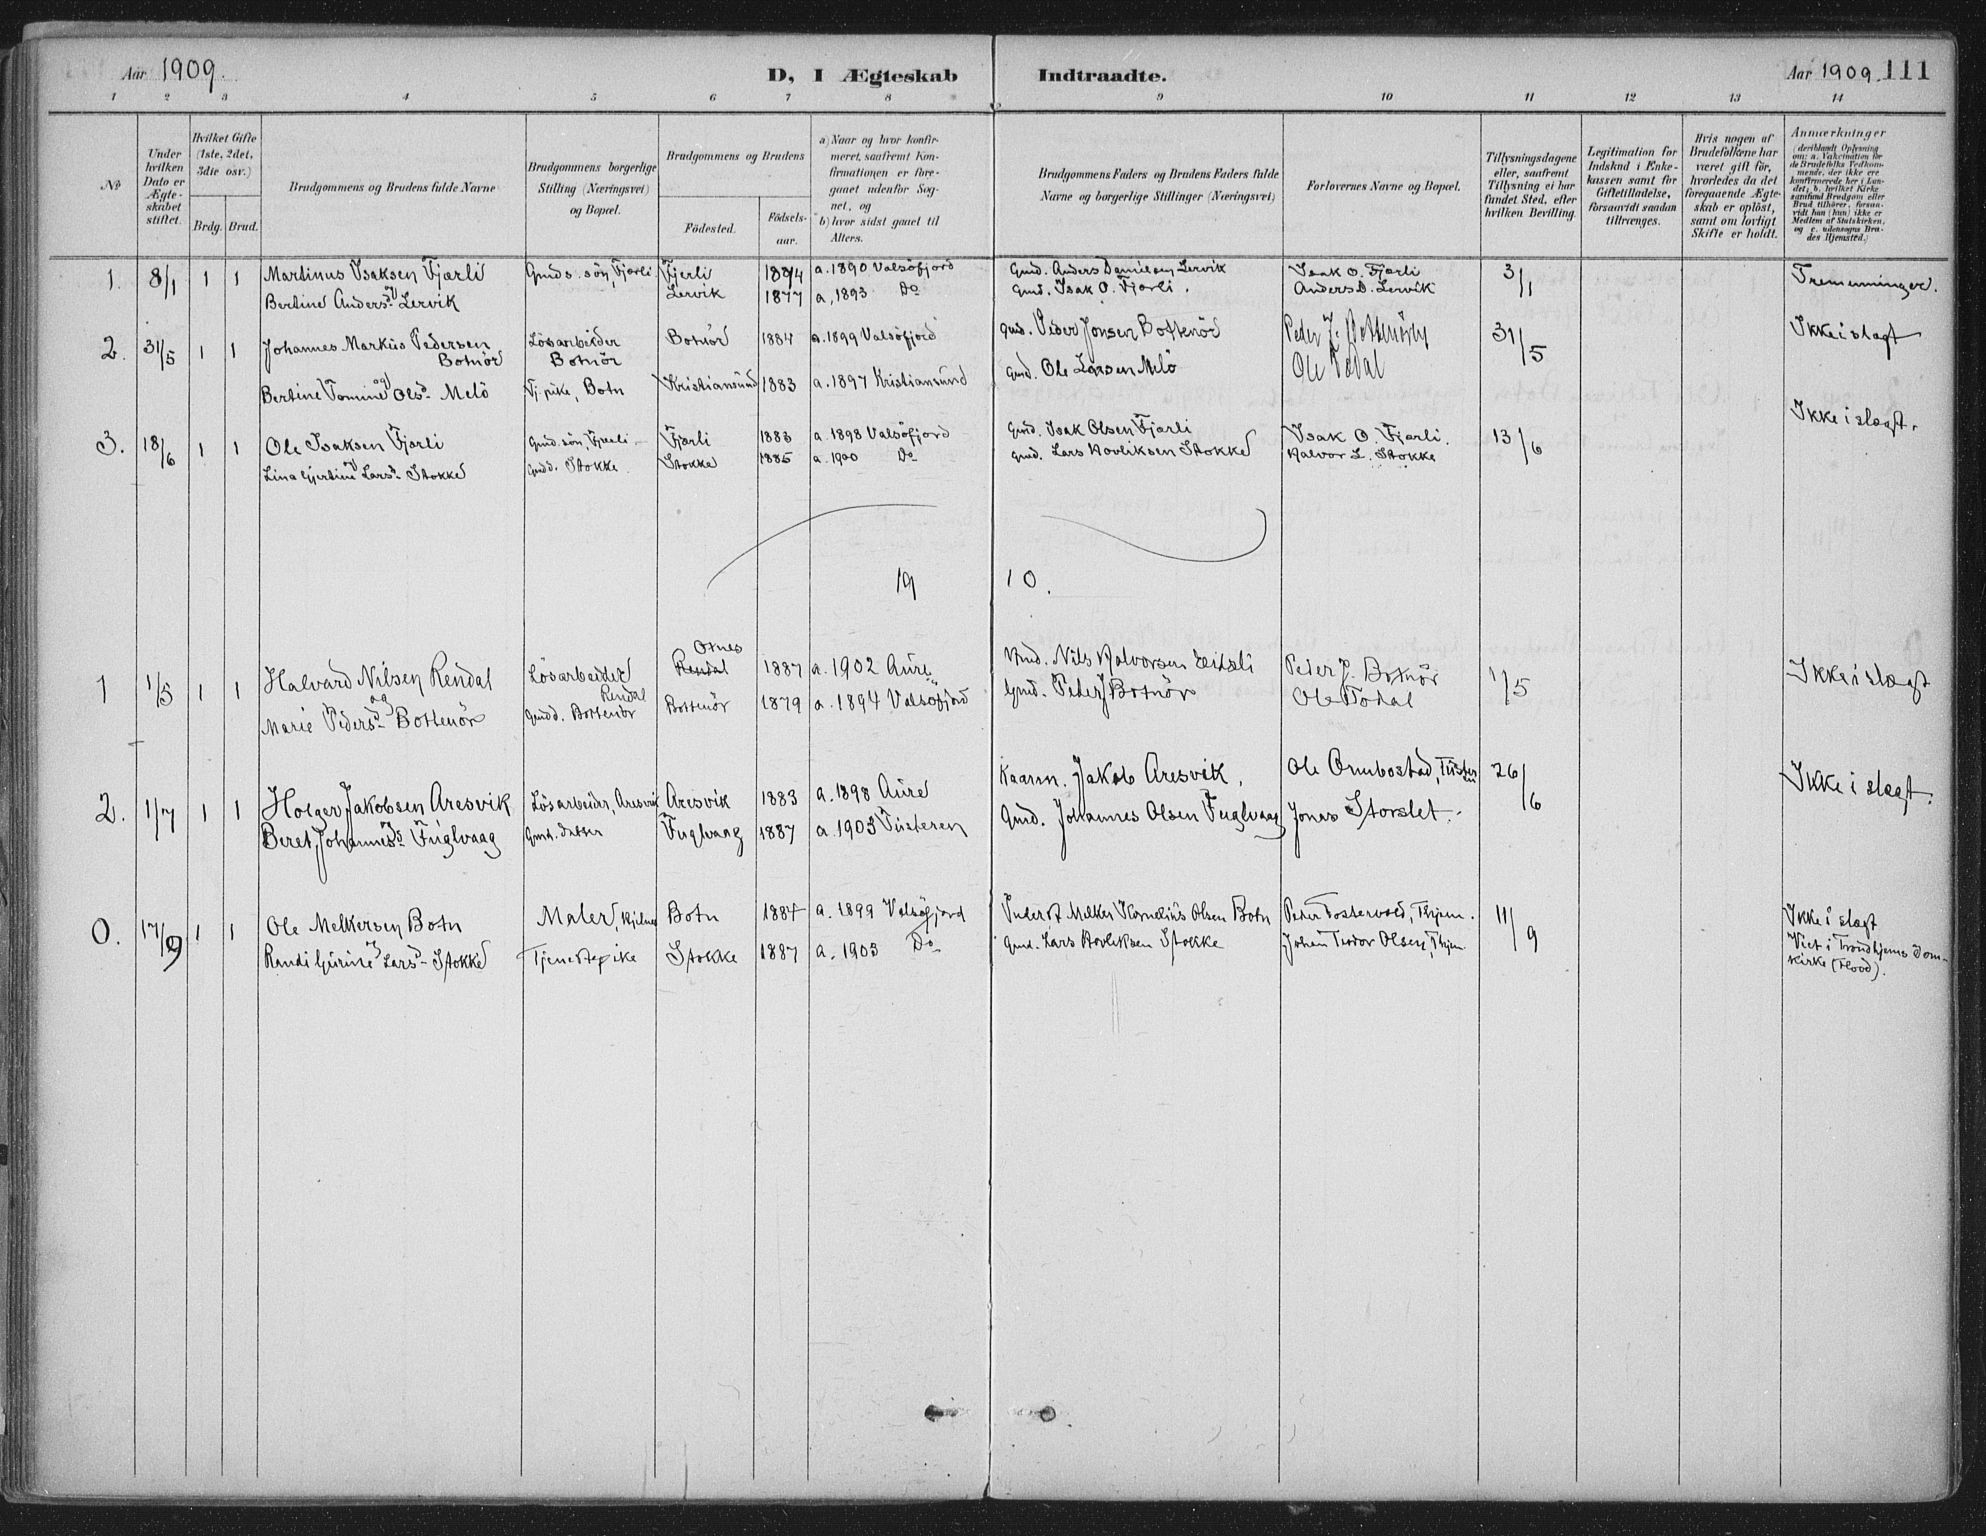 Aar 1909.
D, I Ægteskab Indtraadte.
Aar 1909. 111
1 2 3 4 5 6 7 8 9 10 11 12 13 14
No
Under hvilken Dato er Ægteskabet stiftet.
Hvilket Gifte (1ste, 2det, 3die osv.)
Brdg. Brud.
Brudgommens og Brudens fulde Navne
Brudgommens borgerlige Stilling (Næringsvei) og Bopæl.
Brudgommens og Brudens
Födested. Födselsaar.
a) Naar og hvor konfirmeret, saafremt Konfirmationen er foregaaet udenfor Sognet, og
b) hvor sidst gaaet til Alters.
Brudgommens Faders og Brudens Faders fulde Navne og borgerlige Stillinger (Næringsvei)
Forlovernes Navne og Bopæl.
Tillysningsdagene eller, saafremt Tillysning ei har fundet Sted, efter hvilken Bevilling.
Legitimation for Indskud i Enkekassen samt for Giftetilladelse, forsaavidt saadan tiltrænges.
Hvis nogen af Brudefolkene har været gift för, hvorledes da det foregaaende Ægteskab er oplöst, samt om lovligt Skifte er holdt.
Anmærkninger (deriblandt Oplysning om: a. Vakcination for de Brudefolks Vedkommende, der ikke ere konfirmerede her i Landet; b. hvilket Kirkesamfund Brudgom eller Brud tilhörer, forsaavidt han (hun) ikke er Medlem af Statskirken, og c. udensogns Brudes Hjemsted.)
1. 8/1 1 1 Martinus Isaksen Fjærli Gmds. sön, Fjærli Fjerli 1874 a. 1890 Valsöfjord Gmd. Anders Danielsen Lervik Isak O. Fjærli 3/1 Tremenninger.
og
Bertine Andersd. Lervik Lervik 1877 a. 1893 Do Gmd. Isak O. Fjærli. Anders D. Lervik
2. 31/5 1 1 Johannes Markus Pedersen Botnör Lösarbeider Botnör Botnör 1884 a. 1899 Valsöfjord Gmd. Peder Jonsen Bottenör Peder J. Bottenör 31/5 Ikke i slægt
og
Bertine Tomine Olsd. Melö Tj. pike, Botn Kristiansund 1883 a. 1897 Kristiansund Gmd. Ole Larsen Melö Ole Todal
3. 18/6 1 1 Ole Isaksen Fjærli Gmd. sön, Fjærli Fjærli 1883 a. 1898 Valsöfjord Gmd. Isak Olsen Fjærli Isak O. Fjærli. 13/6 Ikke i slægt.
og
Lina Gjertine Larsd. Stokke Gmdd. Stokke. Stokke 1885 a. 1900 Do Gmd. Lars Hovliksen Stokke Halvor L. Stokke
19 10.
1 1/5 1 1 Halvard Nilsen Rendal Lösarbeider Rendal Rendal Osnes 1887 a. 1902 Aure Gmd. Nils Halvorsen Peder J. Botnör 1/5 Ikke i slægt
og
Marie Pedersd. Bottenör Gmdd. Bottenör Bottenör 1879 a. 1894 Valsöfjord Gmd. Peder J. Botnör Ole Todal
2. 1/7 1 1 Holger Jakobsen Aresvik Lösarbeider, Aresvik Aresvik 1883 a. 1898 Aure Kaarm. Jakob Aresvik. Ole Ormbostad, Tusteren 26/6 Ikke i slægt.
og
Beret Johannesd. Fuglvaag Gmd. datter Fuglvaag 1887 a. 1903 Tusteren Gmd. Johannes Olsen Fuglvaag Jonas Storslet.
0. 17/9 1 1 Ole Melkersen Botn Maler, Botn 1887 a. 1899 Valsöfjord Melker Kornelius Olsen Botn Peter Fostervold, Thjem. 11/9 Ikke i slægt
og
Randi Gurine Larsd. Stokke Tjenestepike Stokke 1887 a. 1903 Do Gmd. Lars Hovliksen Stokke Johan Teodor Olsen, Thjem Viet i Trondhjems Domkirke (Hood).